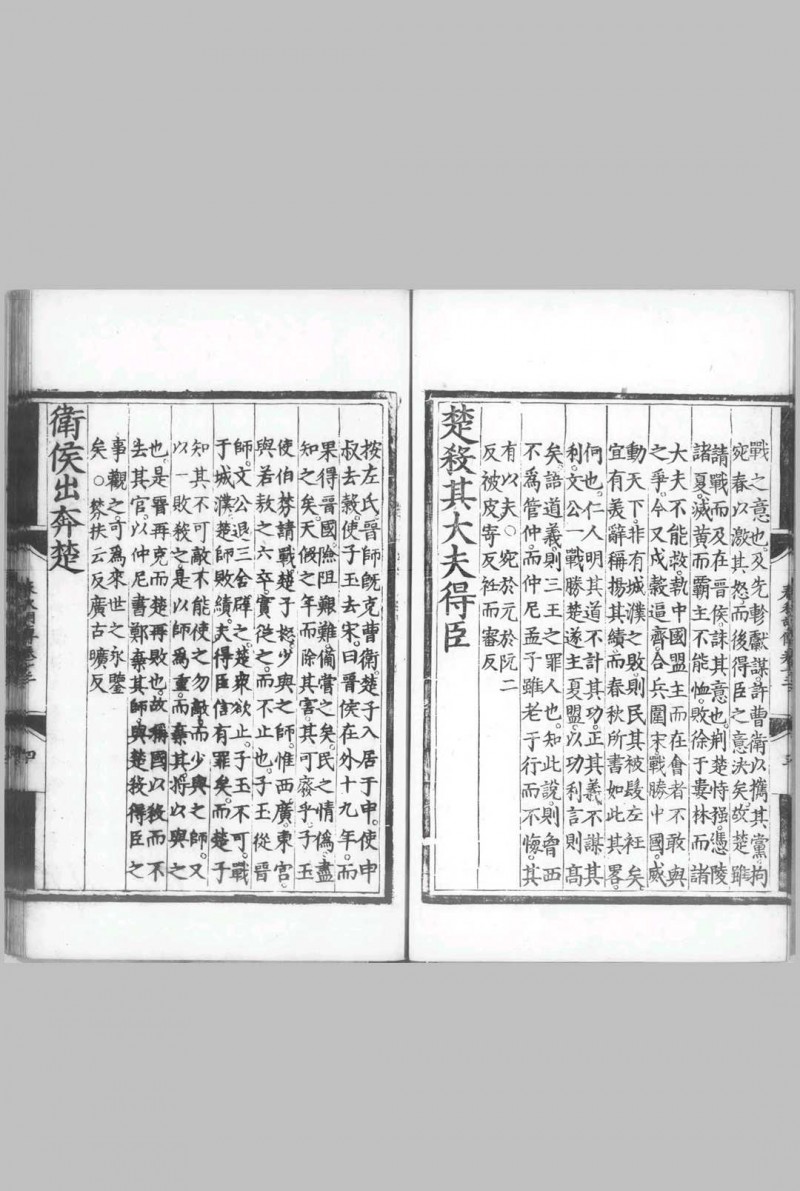 戰之意也。及先軫獻謀。許曹衛以攜其黨。拘
宛春以激其怒。而後得臣之意決矣。故楚雖
請戰。而及在晉侯。誅其意也。荆楚恃强。憑陵
諸夏。滅黃而霸主不能恤。敗徐于婁林而諸
大夫不能救。執中國盟主而在會者不敢與
之爭。今又戍穀逼齊。合兵圍宋。戰勝中國。威
動天下。非有城濮之敗。則民其被髮左衽矣。
宜有美辭稱揚其績。而春秋所書如此其畧。
何也。仁人明其道不計其功。正其義不謀其
利。文公一戰勝楚。遂主夏盟。以功利言則髙
矣。語道義。則三王之罪人也。知此說。則曾西
不爲管仲。而仲尼孟子雖老于行而不悔。其
有以夫。○宛於元於阮二
反被皮寄反衽而審反
楚殺其大夫得臣
按左氏。晉師旣克曹衛。楚子入居于申。使申
叔去穀。使子玉去宋。曰晉侯在外十九年。而
果得晉國。險阻艱難備嘗之矣。民之情僞盡
知之矣。天假之年而除其害。其可廢乎。子玉
使伯棼請戰。楚子怒。少與之師。惟西廣。東宮。
與若敖之六卒。實從之。而不止也。子玉從晉
師。文公退三舍辟之。楚衆欲止。子玉不可。戰
于城濮。楚師敗績。夫得臣信有罪矣。而楚子
知其不可敵。不能使之勿敵。而少與之師。又
以一敗殺之。是以師爲重。而棄其將以與之
也。是晉再克而楚再敗也。故稱國以殺而不
去其官。以仲尼書鄭棄其師。與楚殺得臣之
事觀之。可爲來世之永鑒
矣。○棼扶云反廣古曠反
衛侯出奔楚